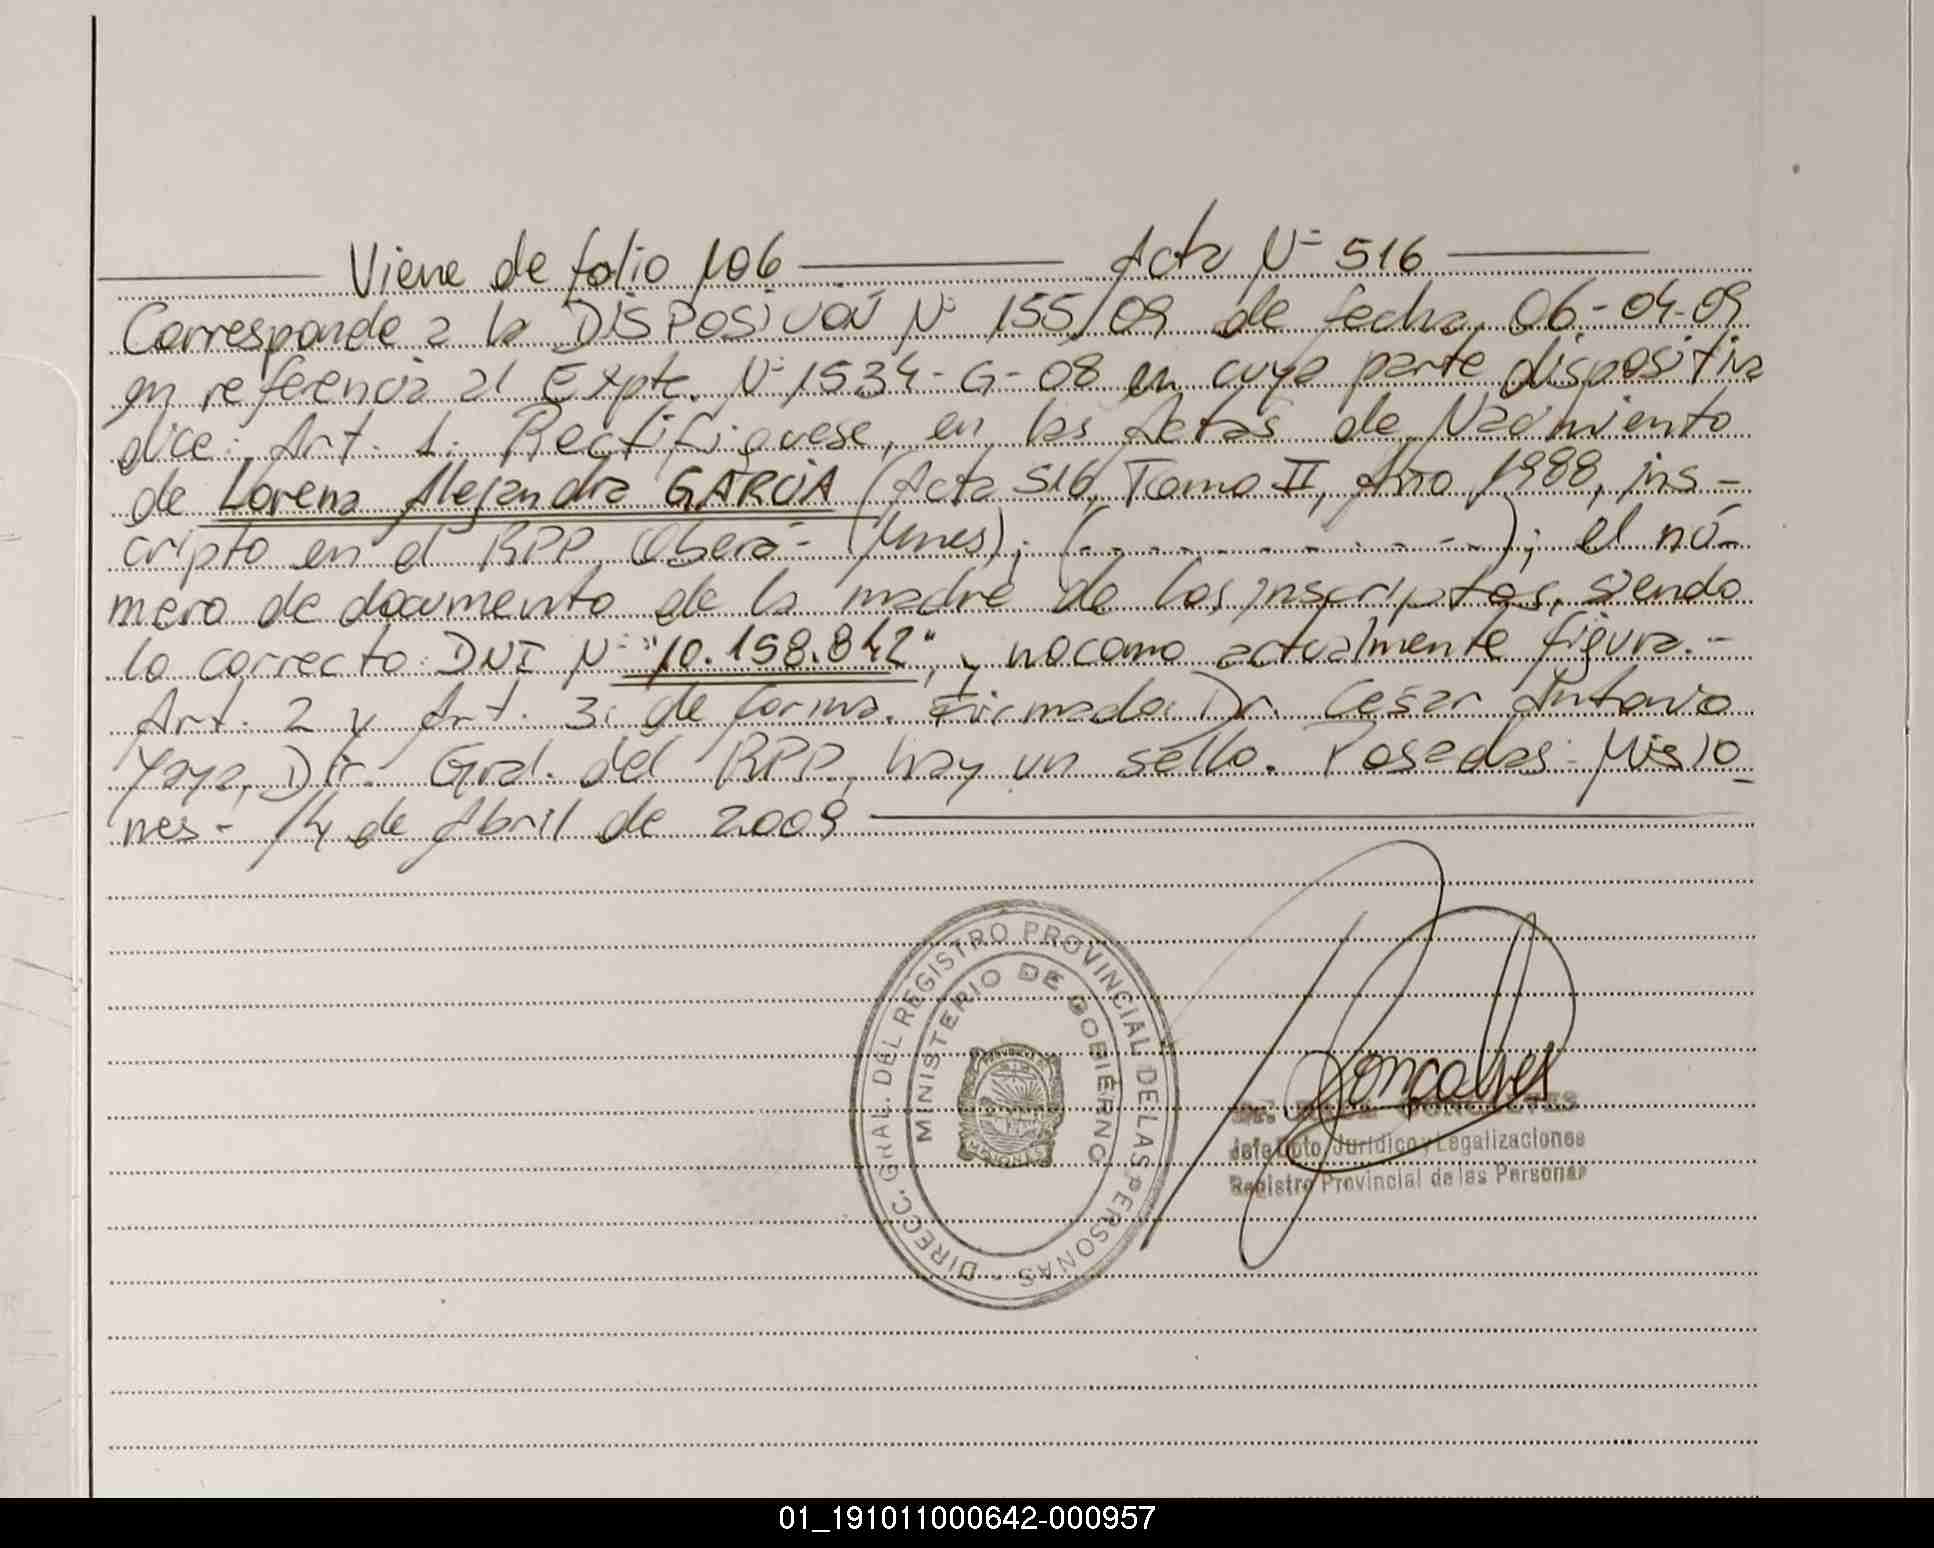 Viene de folio 106 Acta Nº 516
Corresponde a la DISPOSICIÓN Nº 155/09 de fecha 06-04-09
en referencia al Expte. Nº 1534-G-08 en cuya parte dispositiva
dice: Art. 1: Rectifíquese, en las Actas de Nacimiento
de Lorena Alejandra GARCIA (Acta 516, Tomo II, Año 1988, ins-
cripto en el RPP Oberá- (Mnes); (- - - - - - - - - - -); el nú-
mero de documento de la madre de los inscriptos, siendo
lo correcto: DNI Nº "10.158.842", y no como actualmente figura.-
Art. 2 y Art. 3: de forma. Firmado: Dr. Cesar Antonio
Yaya, Dir. Gral. del RPP, hay un sello. Posadas- Misio-
nes- 14 de Abril de 2009
DIRECC. GRAL. DEL REGISTRO PROVINCIAL DE LAS PERSONAS -
MINISTERIO DE GOBIERNO
MISIONES
Goncalves
Dr. GONCALVES
Jefe Dpto. Jurídico y Legalizaciones
Registro Provincial de las Personas
01_191011000642-000957